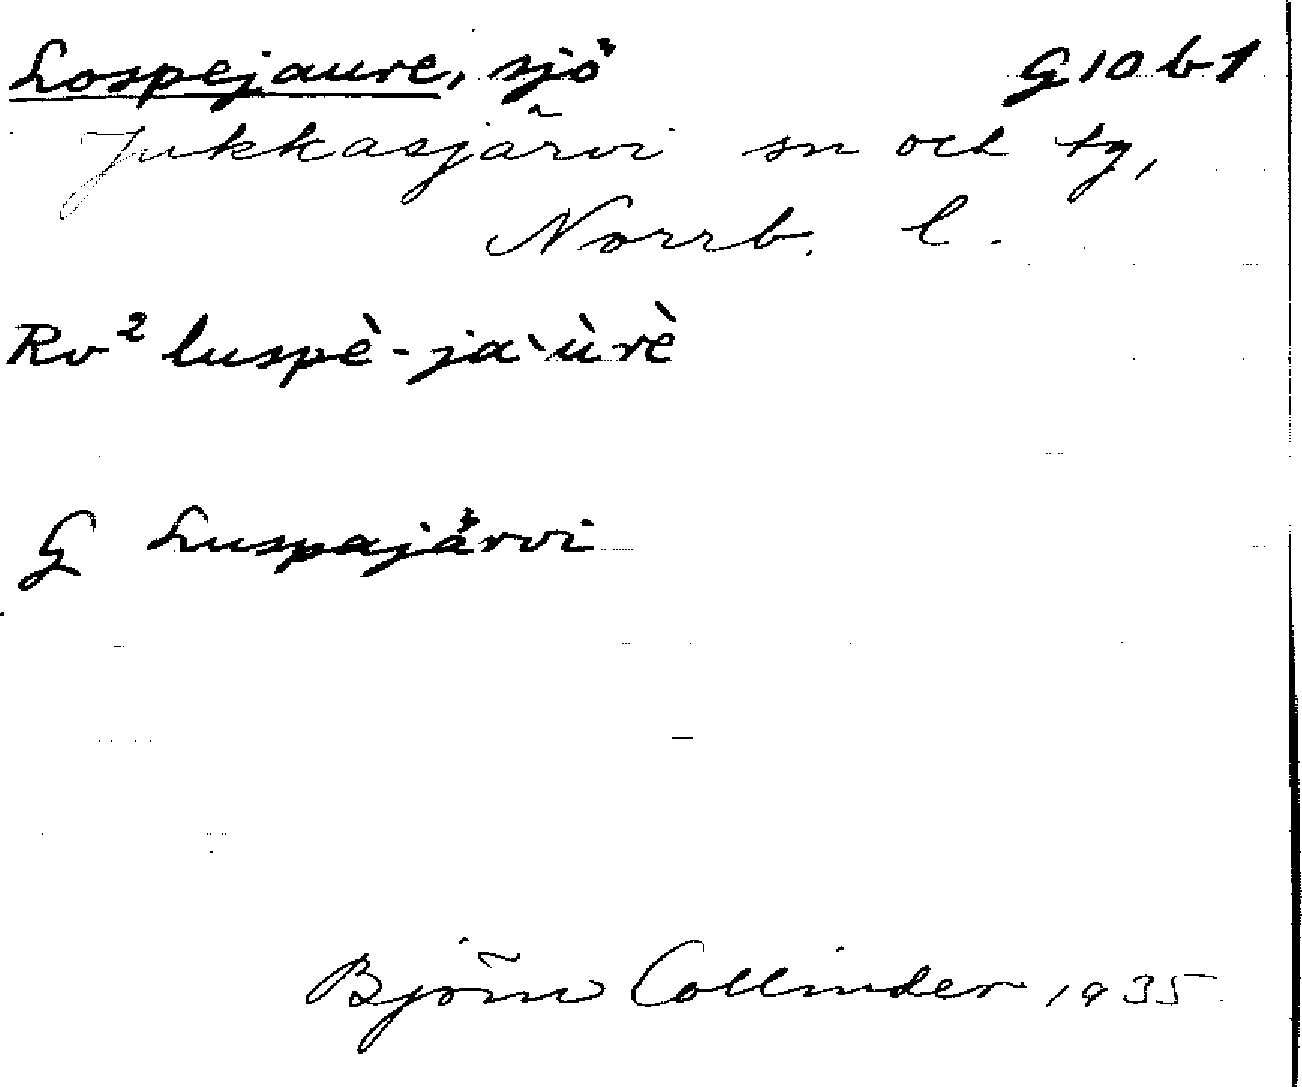 Lospejaure, sjö G 10 b 1
Jukkasjärvi sn och tg,
Norrb. l.
Rv² luspè-ja`ùrè
G Luspajärvi
Björn Collinder 1935